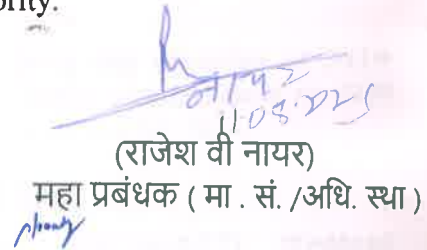 ority.
नायर
11.08.2025
(राजेश वी नायर)
महा प्रबंधक ( मा . सं. /अधि. स्था )